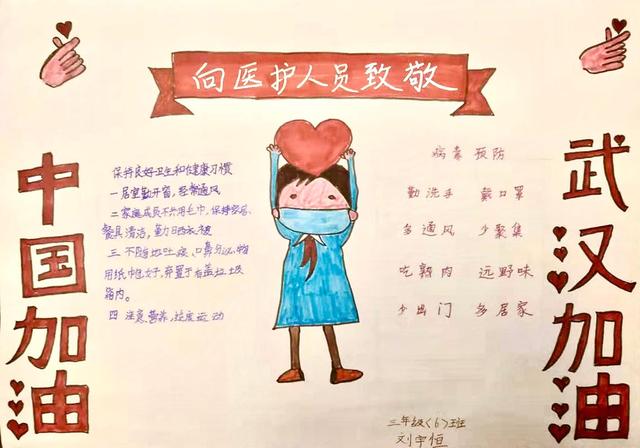 向医护人员致敬
中国加油
保持良好卫生和健康习惯
一居室勤开窗,经常通风
二家庭成员不共用毛巾,保持家居、
餐具清洁,勤日晒衣被
三 不随地吐痰,口鼻分泌物
用纸巾包好,弃置于有盖垃圾
箱内。
四 注意营养,运动
病毒 预防
勤洗手 戴口罩
多通风 少聚集
吃熟肉 远野味
少出门 多居家
武汉加油
三年级(6)班
刘宇恒